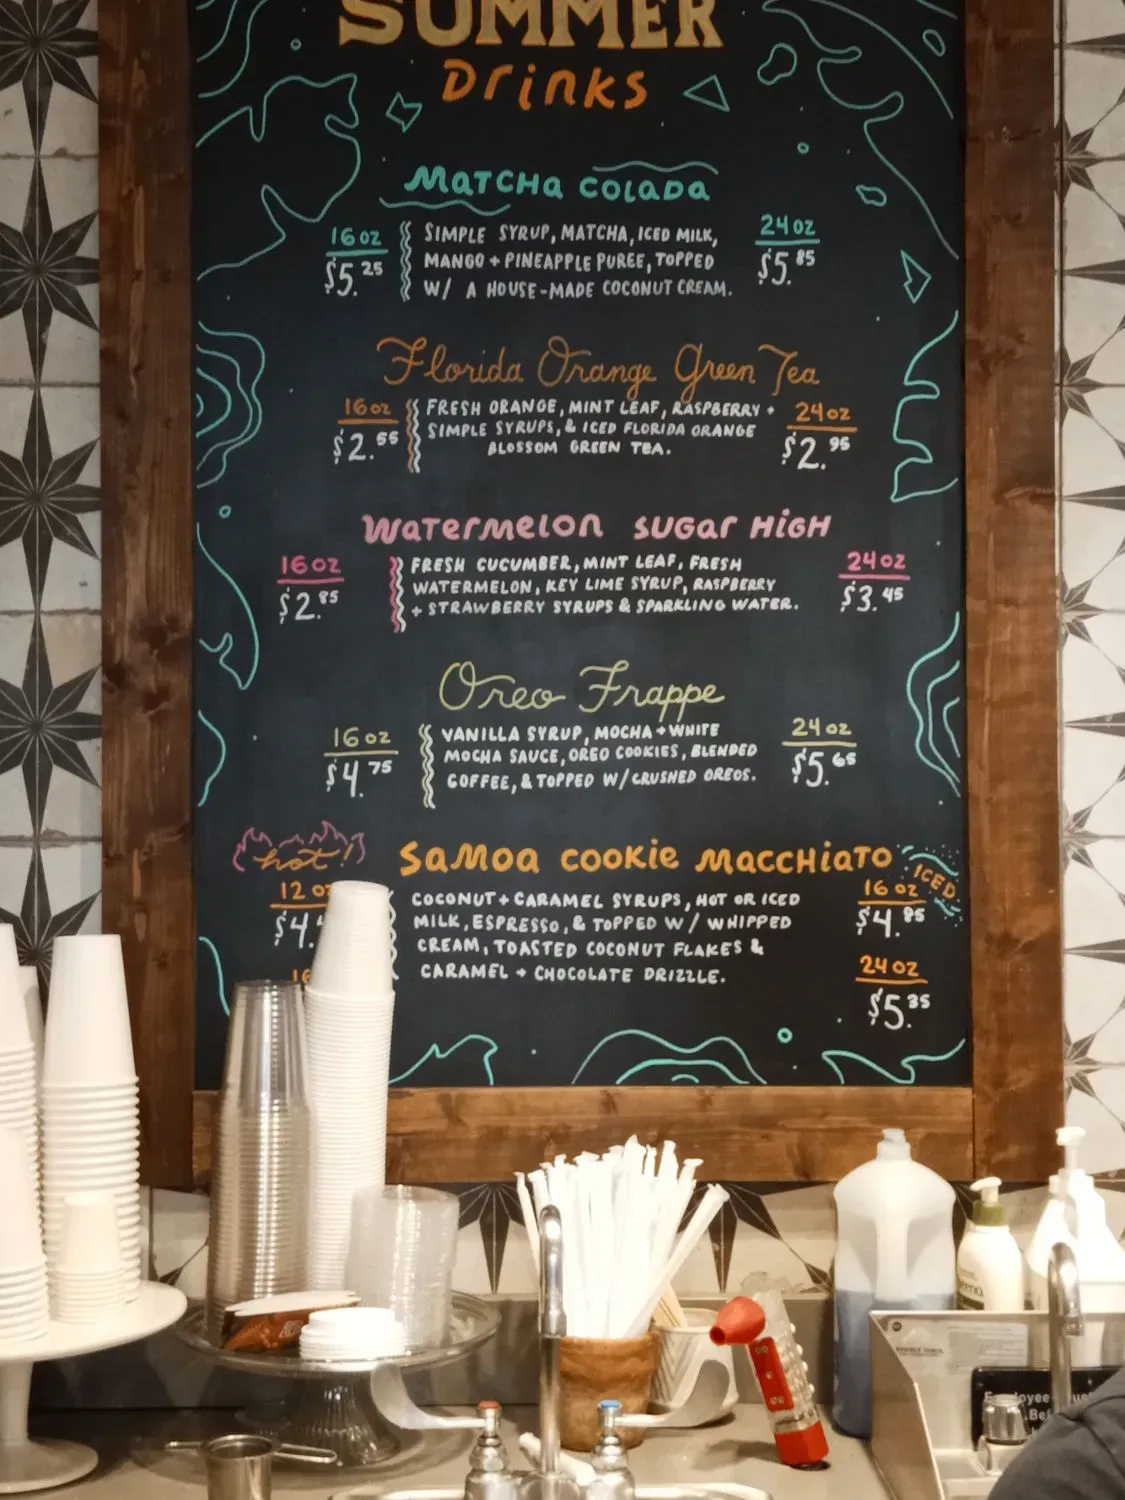 SUMMER
Drinks
MATCHA COLADA
16 oz
$5.25
SIMPLE SYRUP, MATCHA, ICED MILK,
MANGO + PINEAPPLE PUREE, TOPPED
W/ A HOUSE-MADE COCONUT CREAM.
24 oz
$5.85
Florida Orange Green Tea
16 oz
$2.55
FRESH ORANGE, MINT LEAF, RASPBERRY +
SIMPLE SYRUPS, & ICED FLORIDA ORANGE
BLOSSOM GREEN TEA.
24 oz
$2.95
WATERMELON SUGAR HIGH
16 oz
$2.85
FRESH CUCUMBER, MINT LEAF, FRESH
WATERMELON, KEY LIME SYRUP, RASPBERRY
+ STRAWBERRY SYRUPS & SPARKLING WATER.
24 oz
$3.45
Oreo Frappe
16 oz
$4.75
VANILLA SYRUP, MOCHA + WHITE
MOCHA SAUCE, OREO COOKIES, BLENDED
COFFEE, & TOPPED W/ CRUSHED OREOS.
24 oz
$5.65
SAMOA COOKIE MACCHIATO
hot!
12 oz
$4.
16
COCONUT + CARAMEL SYRUPS, HOT OR ICED
MILK, ESPRESSO, & TOPPED W/ WHIPPED
CREAM, TOASTED COCONUT FLAKES &
CARAMEL + CHOCOLATE DRIZZLE.
ICED
16 oz
$4.85
24 oz
$5.35